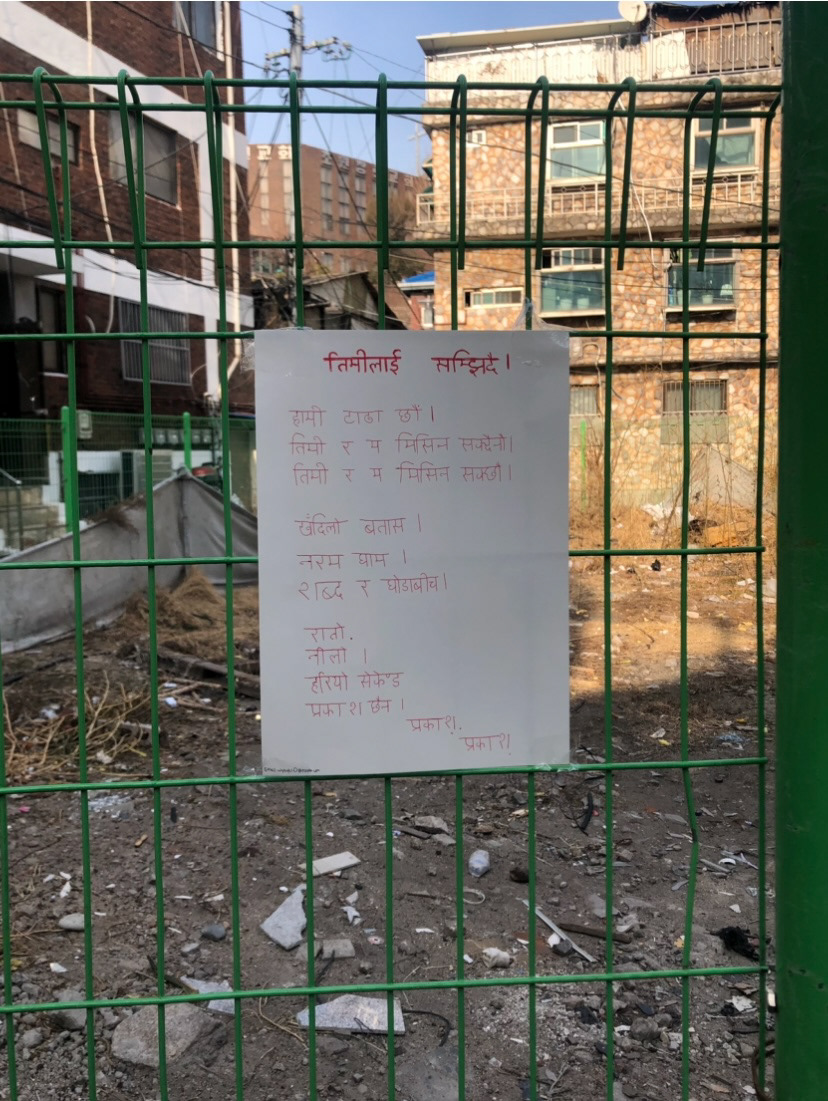 तिमीलाई सम्झिदै।
हामी टाढा छौं।
तिमी र म मिसिन सक्दैनौ।
तिमी र म मिसिन सक्छौ।
खँदिलो बतास।
नरम घाम।
शब्द र घोडाबीच।
रातो.
नीलो।
हरियो सेकेण्ड
प्रकाश छैन।
प्रकाश.
प्रकाश!